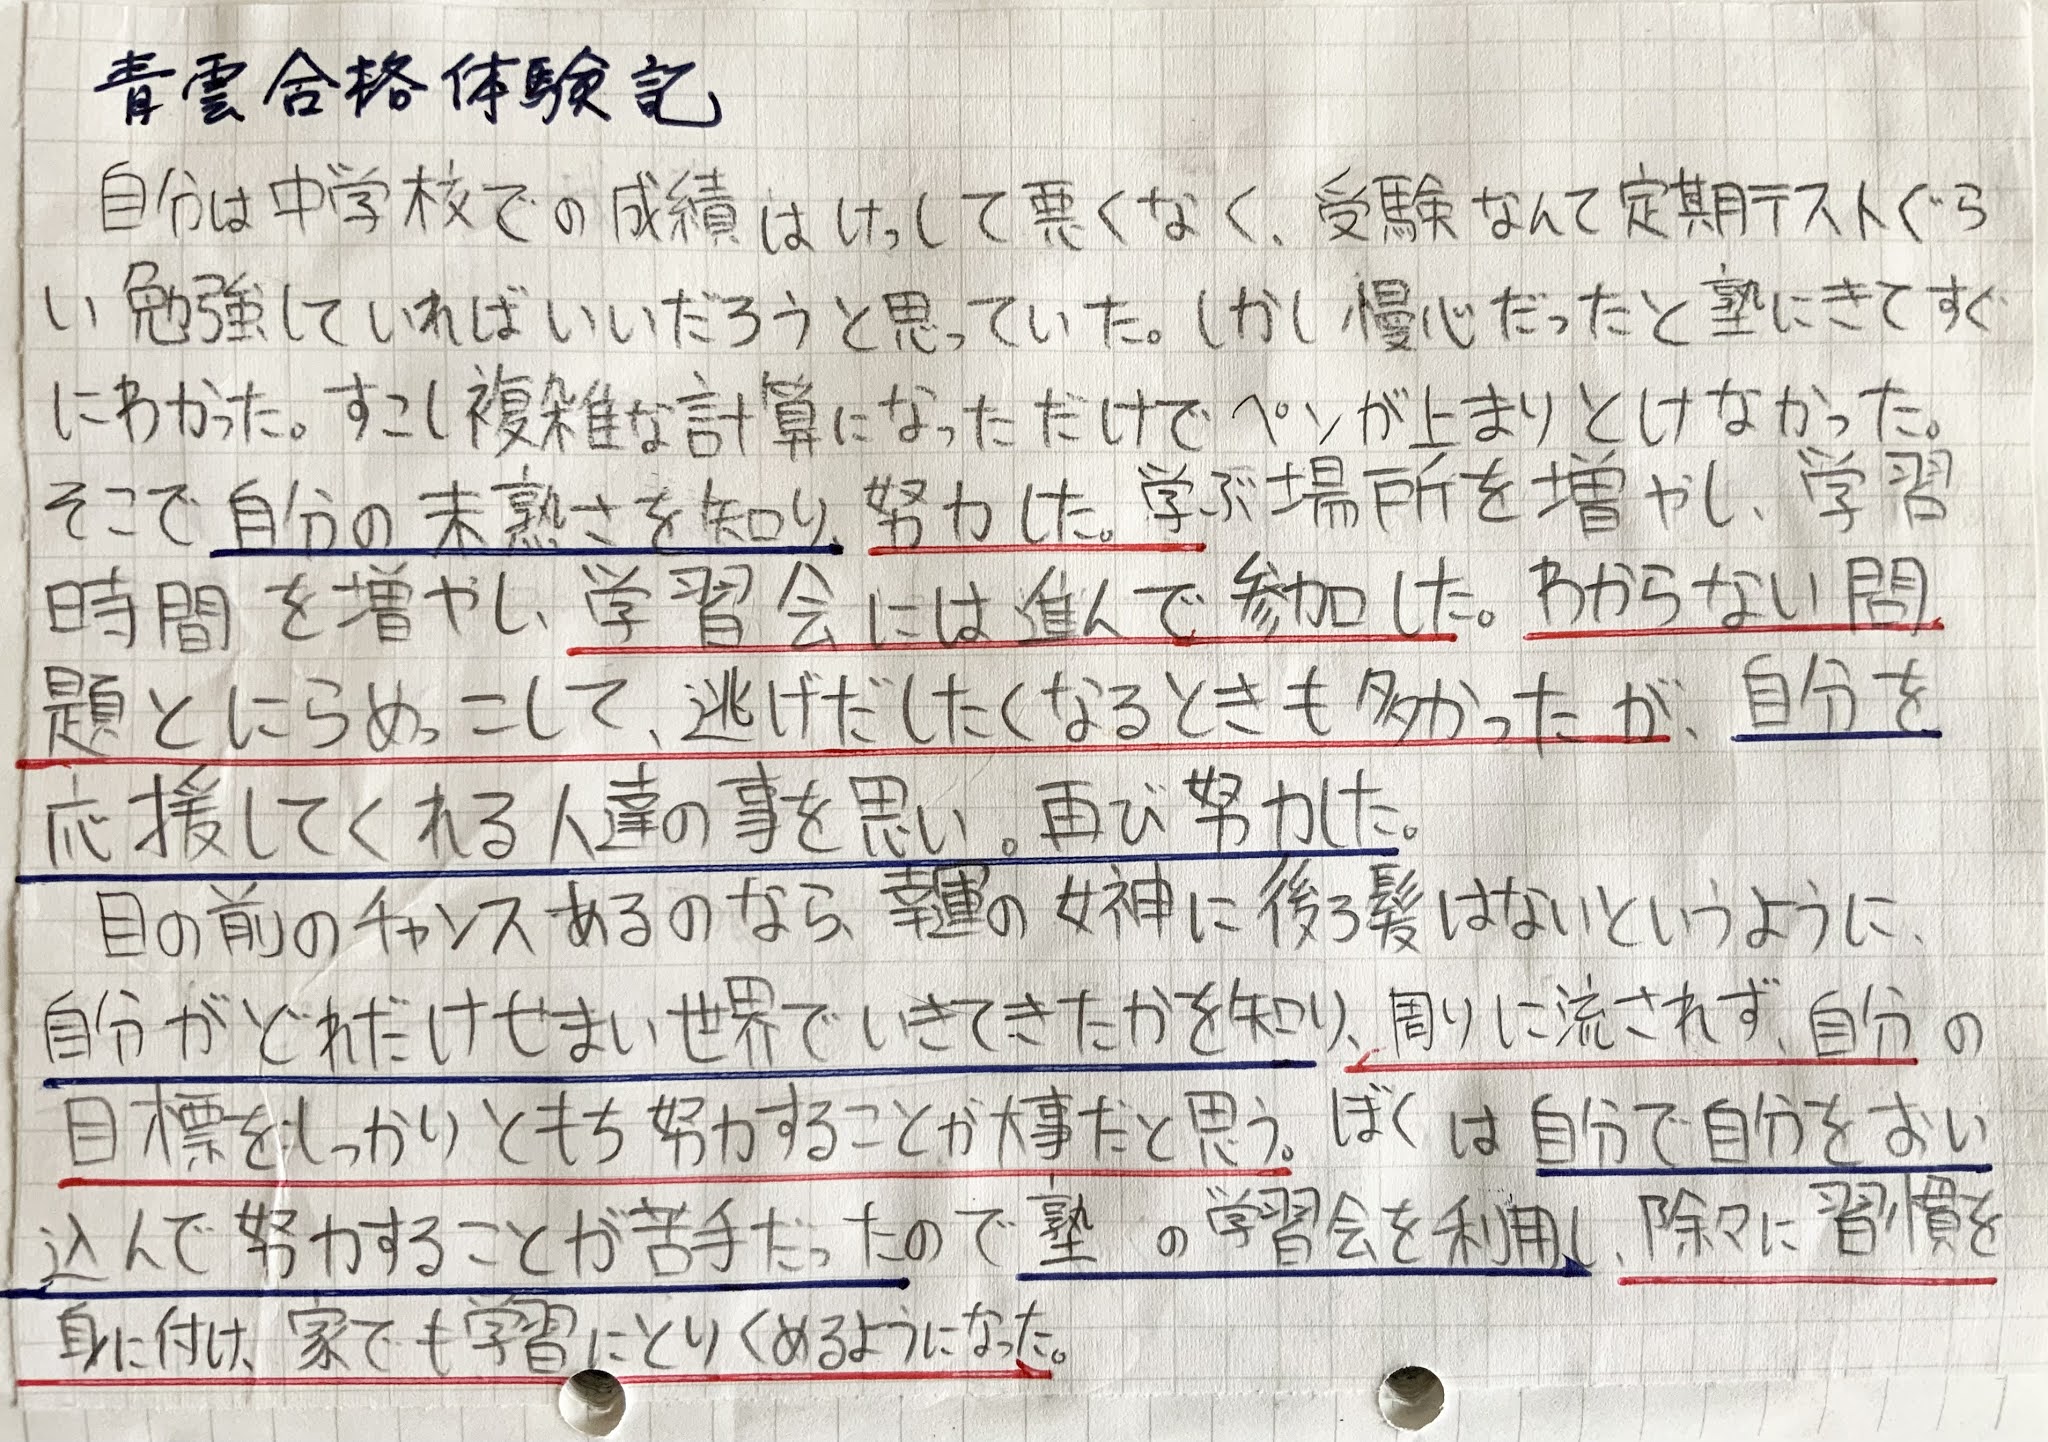 青雲合格体験記
自分は中学校での成績はけっして悪くなく、受験なんて定期テストぐら
い勉強していればいいだろうと思っていた。しかし慢心だったと塾にきてすぐ
にわかった。すこし複雑な計算になっただけでペンが止まりとけなかった。
そこで自分の未熟さを知り、努力した。学ぶ場所を増やし、学習
時間を増やし、学習会には進んで参加した。わからない問
題とにらめっこして、逃げだしたくなるときも多かったが、自分を
応援してくれる人達の事を思い。再び努力した。
目の前のチャンスあるのなら、幸運の女神に後ろ髪はないというように、
自分がどれだけせまい世界でいきてきたかを知り、周りに流されず、自分の
目標をしっかりともち努力することが大事だと思う。ぼくは自分で自分をおい
込んで努力することが苦手だったので塾の学習会を利用し、除々に習慣を
身に付け、家でも学習にとりくめるようになった。